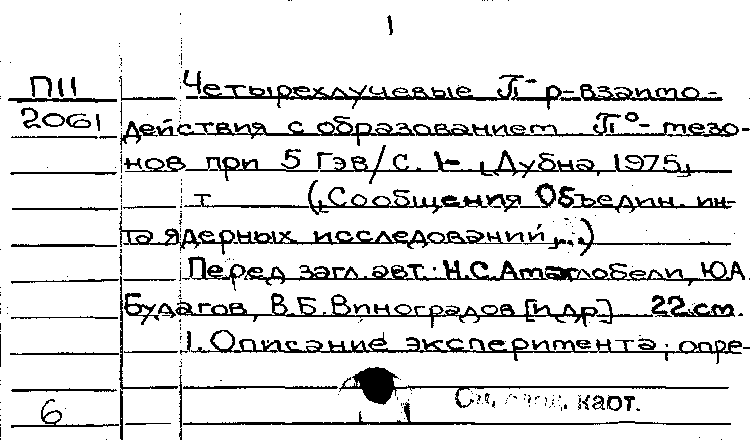 1
П11 Четырехлучевые π⁻p-взаимо-
2061 действия с образованием π⁰-мезо-
нов при 5 Гэв/с. 1- [Дубна, 1975]
т ([Сообщения Объедин. ин-
та ядерных исследований]...)
Перед загл. авт.: Н.С. Амаглобели, Ю.А.
Будагов, В.Б. Виноградов [и др.] 22 см.
1. Описание эксперимента; опре-
6 См. карт.